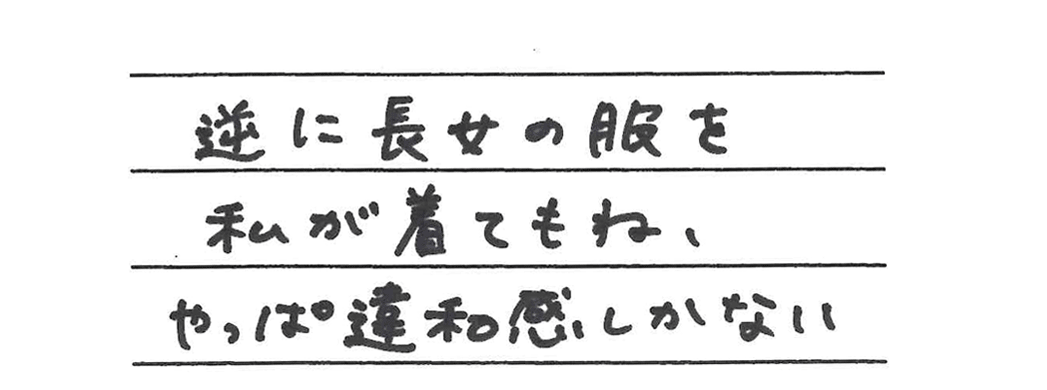 逆に長女の服を
私が着てもね、
やっぱ違和感しかない